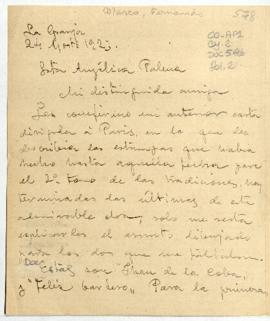 Marco, Fernando
578
La Granja
24 Agosto 192
CO-AP1
Srta Angélica Palma
Mi distinguida amiga
Les confirmo mi anterior carta
dirigida á Paris, en la que les
describia las estampas que habia
hecho hasta aquella fecha para
el 2º tomo de las tradiciones, hoy
terminadas las últimas de esta
admirable obra, solo me resta
explicarles el asunto dibujado
para las dos que me faltaban.
Estas son "Juan de la Coba,
y "Feliz barbero," Para la primera